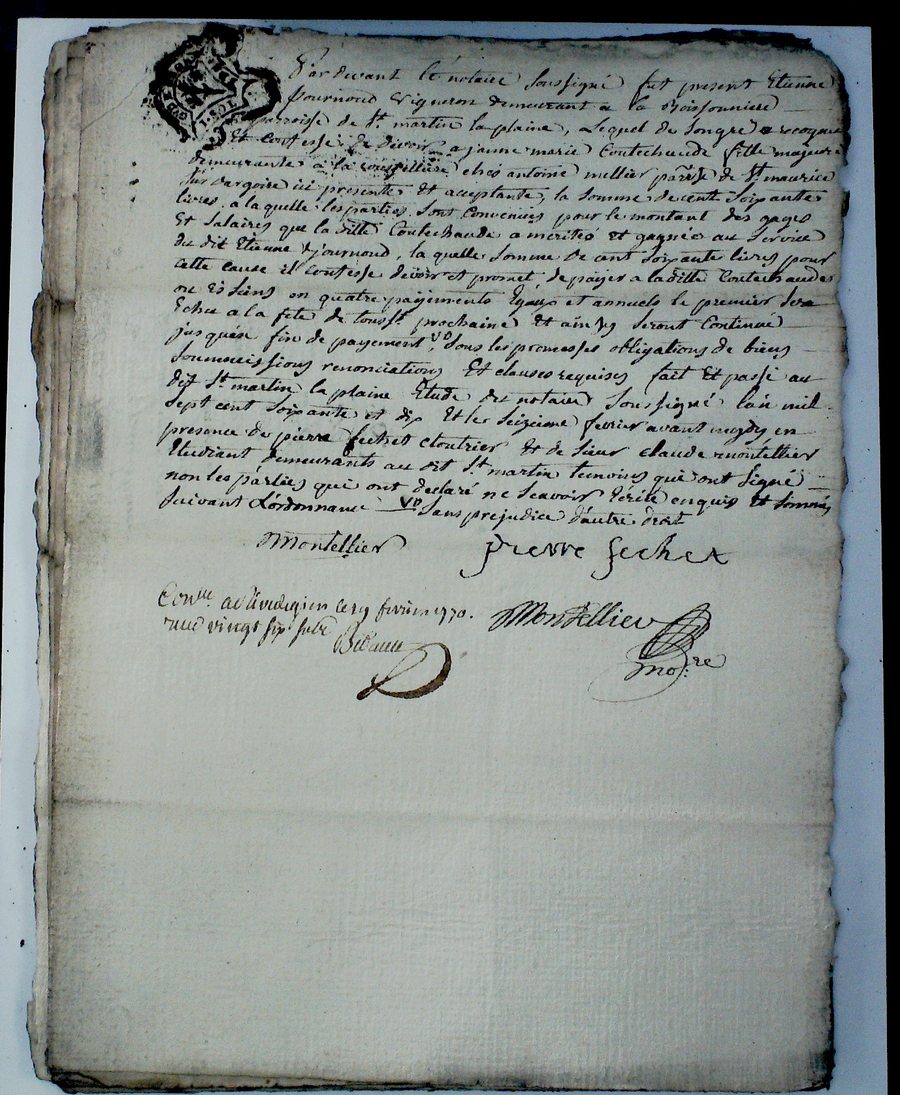 Par devant le notaire soussigné fut present Etienne
journoud vigneron demeurant a la Boissonniere
parroisse de St. martin la plaine, Lequel de son gré a reconnu
Et confesse de devoir a jeanne marie Coutechaude fille majeure
demeurante a la chez antoine mellier parsse de St maurice
sur dargoire ici presente et acceptante, la somme de cent soixante
livres, a la quelle les parties sont convenües pour le montant des gages
Et salaires que la ditte Coutechaude a merités et gagnés au service
du dit Etienne journoud, la quelle somme de cent soixante livres pour
cette cause il confesse devoir et promet de païer a la ditte Coutechaude
ou Es siens en quatre payements Egaux et annuels le premier sera
Echu a la fête de tousst. prochaine Et ainsy seront Continué
jusques en fin de payement, vo sous les promesses obligations de biens
soumissions renonciations Et clauses requises fait Et passé au
dit St. martin la plaine Etude du notaire soussigné L'an mil
sept cent soixante et dix Et le seizieme fevrier avant midy en
presence de pierre fechet cloutrier & de sieur claude montellier
Etudiant demeurants au dit St. martin temoins qui ont signé
non les parties qui ont declaré ne sçavoir Ecrire enquis Et sommés
suivant L'ordonnance Vo sans prejudice d'autre droit
Montellier pierre fechet
Conlle. a le 19 fevrier 1770.
vingt six sols
Montellier
Nore